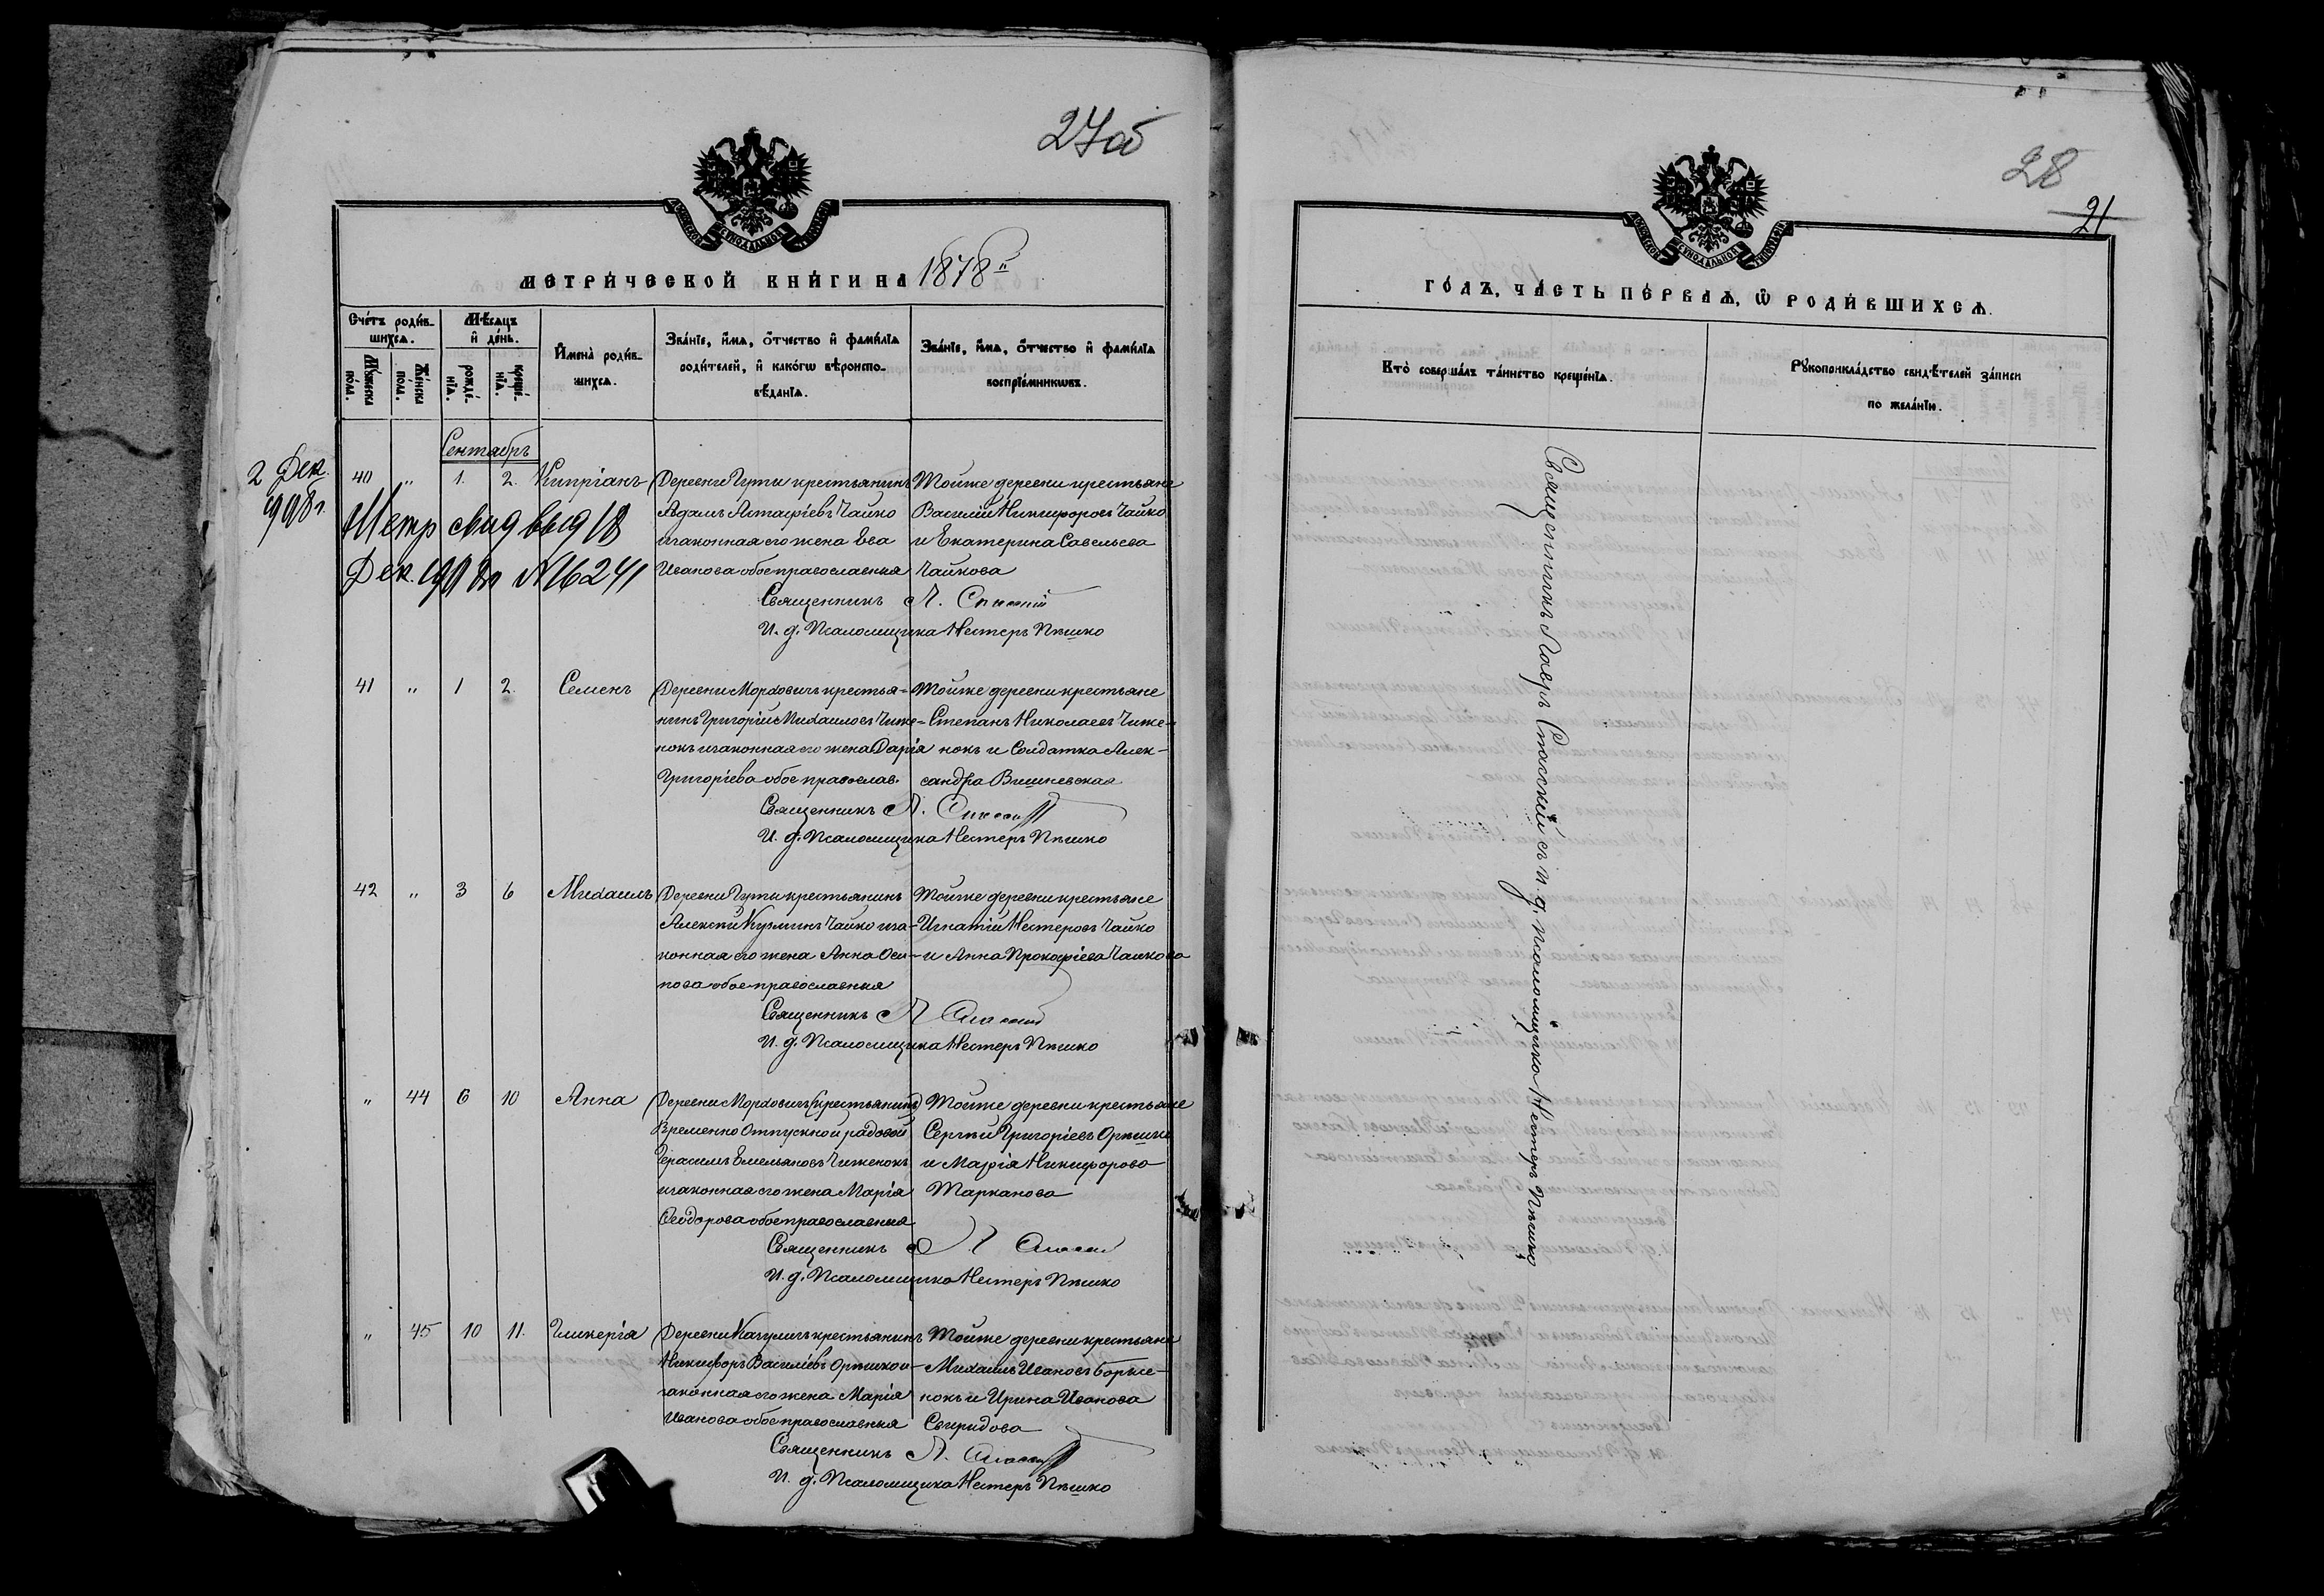 27об
МОСКОВСКОЙ СѴНОДАЛЬНОЙ ТИПОГРАФІИ
МЕТРИ́ЧЕСКОЙ КНИ́ГИ НА 1878й
Сче́тъ роди́в-
шихсѧ.
Мѣ́сѧцъ
и҆ де́нь.
Мꙋ́жеска
по́ла.
Же́нска
по́ла.
рожде́-
нїѧ.
креще́-
нїѧ.
И҆мена̀ роди́в-
шихсѧ.
Зва́нїе, и҆́мѧ, ѻ҆́тчество и҆ фами́лїѧ
роди́телей, и҆ како́гѡ вѣроиспо-
вѣ́данїѧ.
Зва́нїе, и҆́мѧ, ѻ҆́тчество и҆ фами́лїѧ
воспрїе́мникѡвъ.
Сентябрь
2 Дек.
40 " 1. 2. Кипріанъ
Деревни Гуты крестьянинъ
Адамъ Астафіевъ Чайко
изаконная его жена Ева
Иванова обое православныя
Тойже деревни крестьяне
Василій Никифоровъ Чайко
и Екатерина Савельева
Чайкова
Метр свид выд 18
Дек. № 16241
Священникъ Л. Спасскій
И. д. Псаломщика Нестеръ Пѣшко
41 " 1 2. Семенъ
Деревни Морховичъ крестья-
нинъ Григорій Михаиловъ Чиже-
нокъ изаконная его жена Дарія
Григоріева обое православ.
Тойже деревни крестьяне
Степанъ Николаевъ Чиже-
нокъ и Солдатка Алек-
сандра Вишневская
Священникъ Л. Спасскій
И. д. Псаломщика Нестеръ Пѣшко
42 " 3 6 Михаилъ
Деревни Гуты крестьянинъ
Алексѣй Кузминъ Чайко иза-
конная его жена Анна Оси-
пова обое православныя
Тойже деревни крестьяне
Игнатій Нестеровъ Чайко
и Анна Прокофіева Чайкова
Священникъ Л Спасскій
И. д. Псаломщика Нестеръ Пѣшко
" 44 6 10 Анна
Деревни Морховичъ (крестьянинъ)
Временно Отпускной рядовой
Герасимъ Емельяновъ Чиженокъ
изаконная его жена Марія
Ѳеодорова обое православныя
Тойже деревни крестьяне
Сергѣй Григоріевъ Орѣшко
и Марія Никифорова
Тарканова
Священникъ Л Спасскій
И. д. Псаломщика Нестеръ Пѣшко
" 45 10 11. Гликерія
Деревни Качуличъ крестьянинъ
Никифоръ Василіевъ Орѣшко и
законная его жена Марія
Иванова обое православныя
Тойже деревни крестьяне
Михаилъ Ивановъ Борисе-
нокъ и Ирина Иванова
Свиридова
Священникъ Л. Спасскій
И. д. Псаломщика Нестеръ Пѣшко
28
21
МОСКОВСКОЙ СѴНОДАЛЬНОЙ ТИПОГРАФІИ
ГО́ДЪ, ЧА́СТЬ ПЕ́РВАѦ, Ѡ҆ РОДИ́ВШИХСѦ.
Кто̀ соверша́лъ та́инство креще́нїѧ.
Рꙋкоприкла́дство свидѣ́телей за́писи
по жела́нїю.
Священникъ Лавръ Спасскій съ и. д. псаломщика Нестеръ Пѣшко